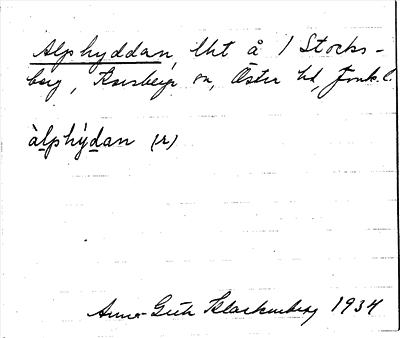 Alphyddan, lht å 1 Stocks-
berg, Asersberg sn, Öster hd,
àlphýdan (r)
Anna-Greta Klackenberg 1934